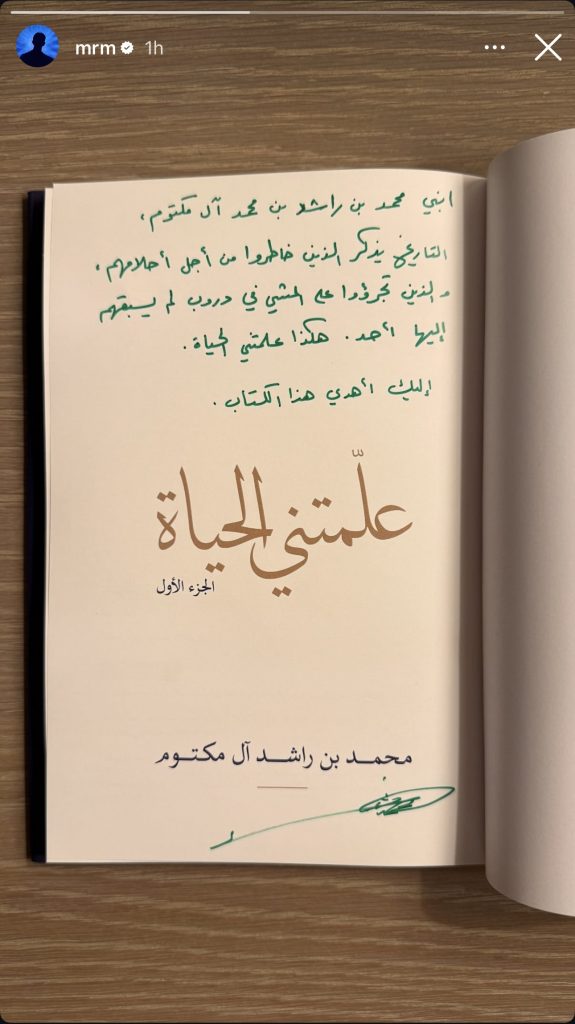 mrm 1h
ابني محمد بن راشد بن محمد آل مكتوم،
التاريخ يذكر الذين خاطروا من أجل أحلامهم،
والذين تجرؤوا على المشي في دروب لم يسبقهم
إليها أحد. هكذا علمتني الحياة.
إليك أهدي هذا الكتاب.
علّمتني الحياة
الجزء الأول
محمد بن راشد آل مكتوم